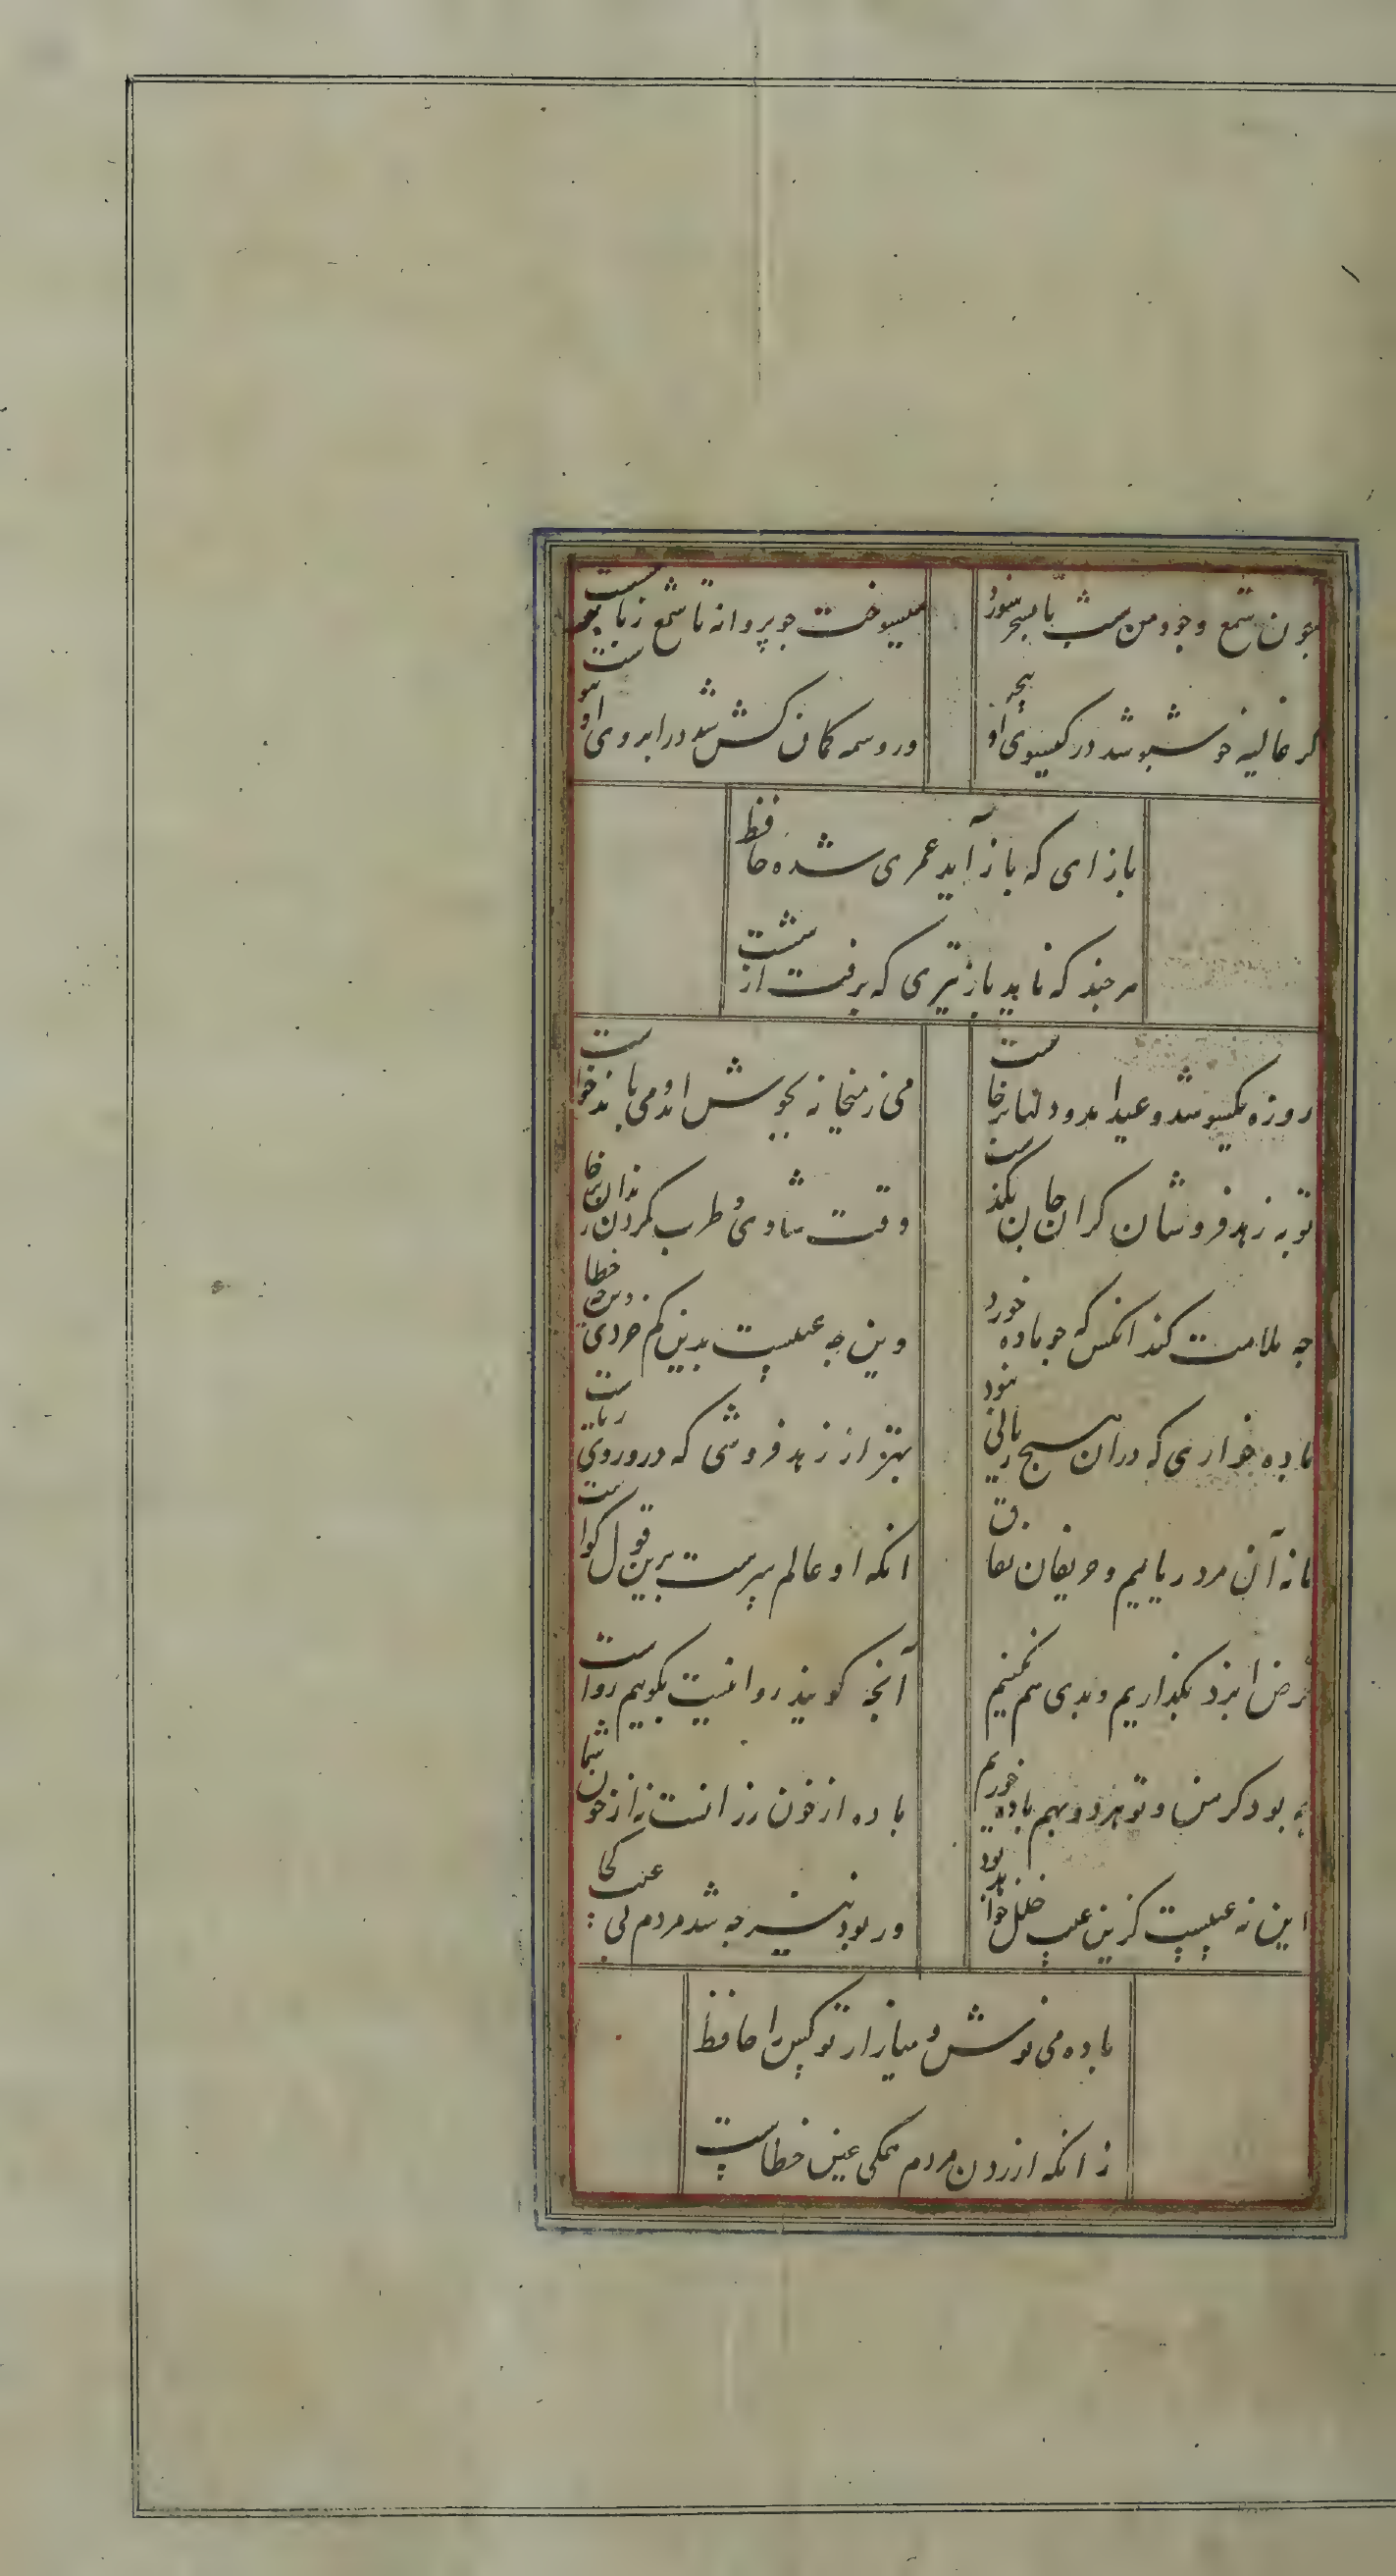 چون شمع وجود من شب تا بسحر خود را
میسوخت چو پروانه تا شمع ز پا ننشست
کر غالیه خوشبو شد در کیسوی او پیچید
ور وسمه کمان کش شد در ابروی او پیوست
باز ای که باز آید عمری شده حافظ
هر چند که ناید باز تیری که برفت از شست
روزه یکسو شد و عید امد و دلها برخاست
می ز میخانه بجوش امد و می باید خواست
توبه زهد فروشان کران جان بکذشت
وقت شادی و طرب کردن رندان برخاست
چه ملامت کند انکس که چو ما باده خورد
وین چه عیبست بدین کم خردی وین چه خطا
باده خواری که در ان هیچ ریائی نبود
بهتر از زهد فروشی که در و روی ریاست
ما نه آن مرد ریاییم و حریفان نفاق
انکه او عالم سرست برین قول کواست
فرض ایزد بکذاریم و بدی هم نکنیم
آنچه کویند روا نیست بکوییم رواست
چه بود کر من و تو هر دو بهم باده خوریم
باده از خون رزانست نه از خون شما
این نه عیبست کزین عیب خلل خواهد بود
ور بود نیز چه شد مردم بی عیب کجا
باده می نوش و میازار تو کس را حافظ
زانکه ازردن مردم همکی عین خطاست